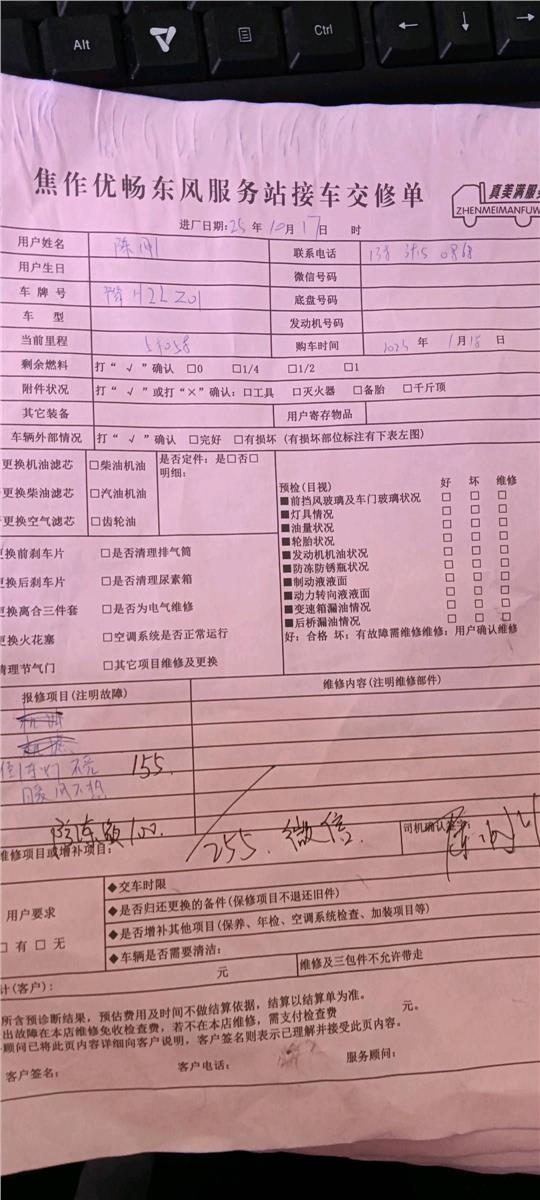 Alt
Ctrl
焦作优畅东风服务站接车交修单
真美满服务
ZHENMEIMANFUW
进厂日期:25年10月17日 时
用户姓名 陈 联系电话
用户生日 微信号码
车牌号 豫H2LZ01 底盘号码
车型 发动机号码
当前里程 购车时间 年1月18日
剩余燃料 打“√”确认 □0 □1/4 □1/2 □1
附件状况 打“√”或打“×”确认:□工具 □灭火器 □备胎 □千斤顶
其它装备 用户寄存物品
车辆外部情况 打“√”确认 □完好 □有损坏(有损坏部位标注有下表左图)
更换机油滤芯 □柴油机油 是否定件:是□否□
明细:
更换柴油滤芯 □汽油机油
更换空气滤芯 □齿轮油
更换前刹车片 □是否清理排气筒
更换后刹车片 □是否清理尿素箱
更换离合三件套 □是否为电气维修
更换火花塞 □空调系统是否正常运行
清理节气门 □其它项目维修及更换
预检(目视) 好 坏 维修
■前挡风玻璃及车门玻璃状况 □ □ □
■灯具情况 □ □ □
■油量状况 □ □ □
■轮胎状况 □ □ □
■发动机机油状况 □ □ □
■防冻防锈瓶状况 □ □ □
■制动液液面 □ □ □
■动力转向液液面 □ □ □
■变速箱漏油情况 □ □ □
■后桥漏油情况 □ □ □
好:合格 坏:有故障需维修维修:用户确认维修
报修项目(注明故障) 维修内容(注明维修部件)
倒车灯不亮 155.
暖风不热
100.
255. 微信.
维修项目或增补项目: 司机确认签字:
用户要求
□有□无
◆交车时限
◆是否归还更换的备件(保修项目不退还旧件)
◆是否增补其他项目(保养、年检、空调系统检查、加装项目等)
◆车辆是否需要清洁:
计(客户): 元 维修及三包件不允许带走
所含预诊断结果,预估费用及时间不做结算依据,结算以结算单为准。
出故障在本店维修免收检查费,若不在本店维修,需支付检查费 元。
顾问已将此页内容详细向客户说明,客户签名则表示已理解并接受此页内容。
客户签名: 客户电话: 服务顾问: